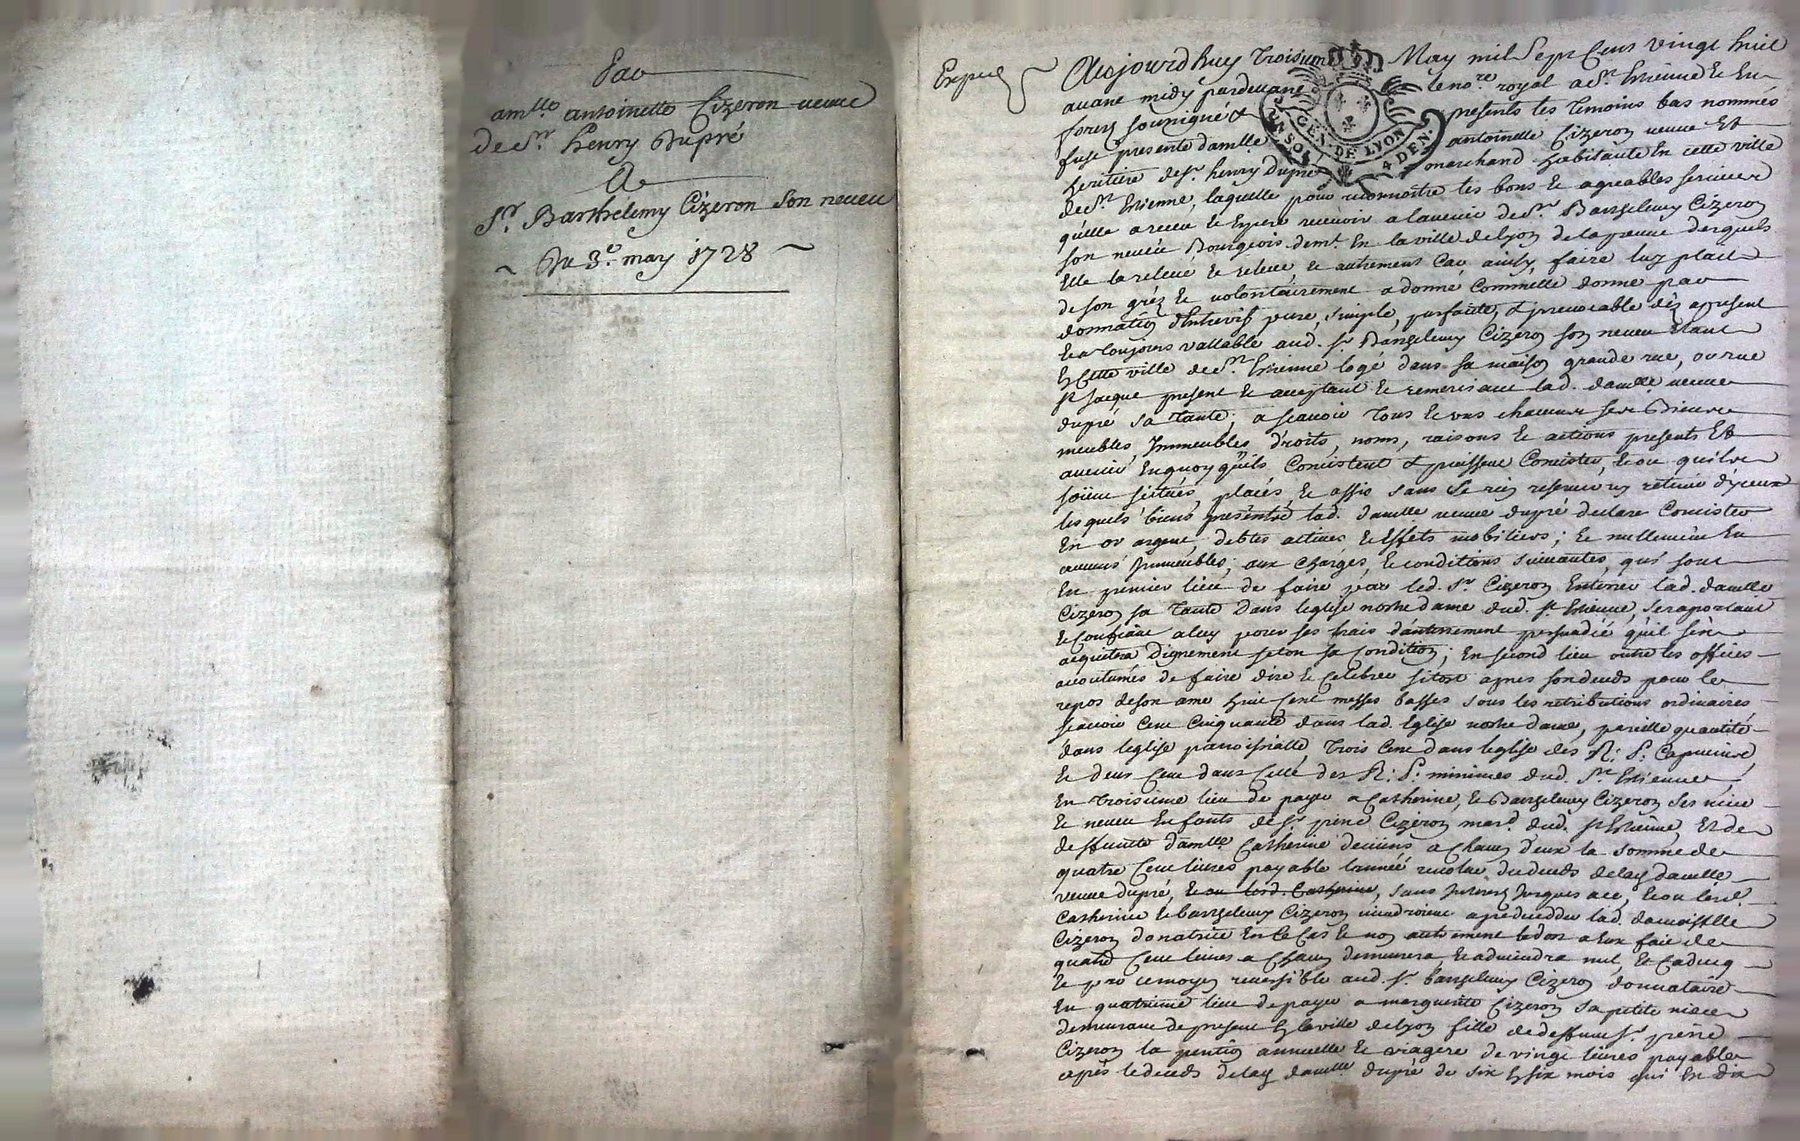 Par
amlle antoinette Cizeron veuve
de Sr. Henry Dupré
A
Sr. Barthelemy Cizeron son neveu
~ Du 3e. may 1728 ~
Aujourd huy Troisieme May mil Sept Cens vingt huit
avant midy pardevant le nore. royal a St. Etienne de
forez soussigné & presents les temoins bas nommés
fuse presente damlle antoinette Cizeron veuve Et
heritiere de Sr. henry Dupré marchand habitante En cette ville
de St. Etienne, laquelle pour reconnoitre les bons & agreables services
quelle a receu & Espere recevoir a lavenir de Sr. Barthelemy Cizeron
son neveu Bourgeois demt. En la ville de Lyon de la preuve desquels
Elle la relevé & releve, & autrement Car ainsy faire luy plait
de son gréz & volontairement a donné Comme elle donne par
donnation d'Entrevifs pure, simple, parfaitte, & irrevocable dés a present
& a Toujours vallable aud. Sr. Barthelemy Cizeron son neveu Etant
En Cette ville de St. Etienne logé dans sa maison grande rue, ou rue
St. Jacque present & acceptant & remerciant lad. damlle veuve
dupré sa Tante, a scavoir Tous & uns chacuns ses Biens
meubles, Immeubles, droits, noms, raisons & actions presents Et
avenir Enquoy quils Consistent & puissent Consister, & ou quils
soient scitués, placés & assis sans se rien reserver ny retenir d'yceux
lesquels biens presents lad. damlle veuve dupré declare Consister
En or argent, debtes actives & Effets mobiliers; & nullement En
aucuns Immeubles; aux Charges, & conditions suivantes, qui sont
En premier lieu de faire par led. Sr. Cizeron Enterrer lad. damlle
Cizeron sa Tante dans leglise nostre dame dud. St. Etienne, se raportant
& Confiant a luy pour ses frais d'anterrement persuadée quil sen
acquitera dignement selon sa Condition; En second lieu outre les offices
acoutumés de faire dire & Celebrer sitost apres son deceds pour le
repos de son ame huit Cent messes basses sous les retributions ordinaires
scavoir Cent Cinquante dans lad. Eglise nostre dame, pareille quantité
dans leglise parroissialle, Trois Cent dans leglise des R: P: Capucins,
& deux Cent dans Celle des R: P: minimes dud. St. Etienne,
En Troisieme lieu de payer a Catherine, & Barthelemy Cizeron ses niece
& neveu Enfants de Sr. piere Cizeron mard. dud. St. Etienne, Et de
deffunte damlle Catherine a Chacun d'eux la somme de
quatre Cent livres payable lannée revolue du deceds de lad. damlle
veuve dupré, sans Interets Jusques a ce, & ou lesd.
Catherine & barthelemy Cizeron viendroient a predecedder lad. damoiselle
Cizeron donatrice En Ce Cas & non autrement le don a Eux fait de
quatre Cent livres a Chacun demurera & adviendra nul, Et Caducq
& par ce moyen reversible aud. Sr. barthelemy Cizeron donnataire
En quatrieme lieu de payer a marguerite Cizeron sa petite niece
demeurant de present En la ville de Lyon fille de deffunt Sr. piere
Cizeron la pention annuelle & viagere de vingt livres payable
aprés le deceds de lad. damlle dupré de six En six mois qui En dix